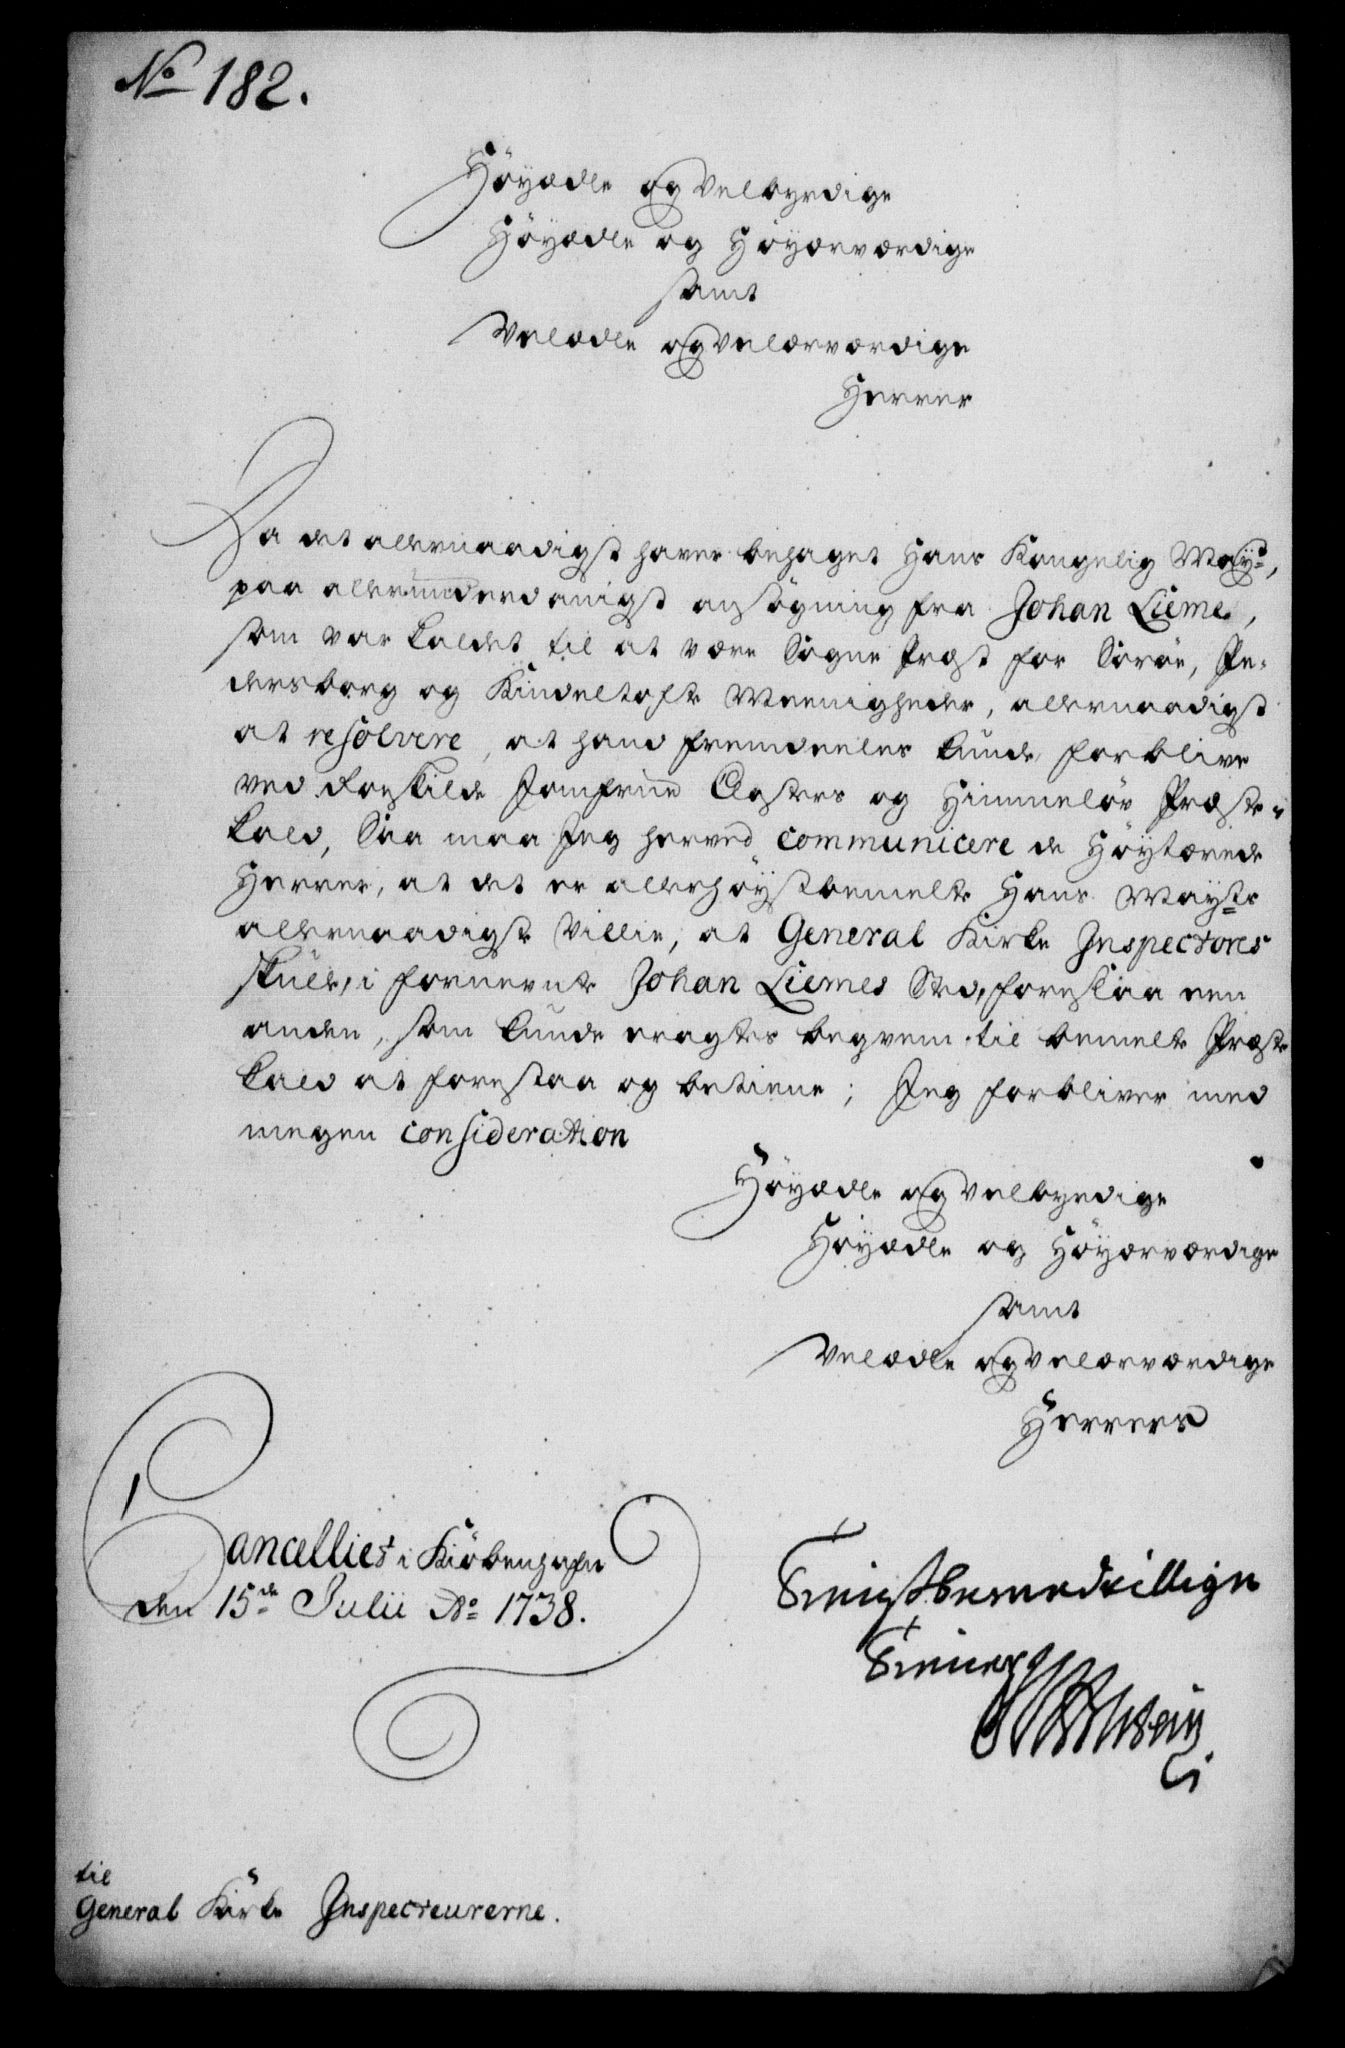 No 182.
Høyædle og Velbyrdige
Høyædle og Høyærværdige
samt
Velædle og Velærværdige
Herrer
Da det allernaadigst haver behaget Hans Kongelig Mayt,
paa allerunderdanigst ansøgning fra Johan Lieme,
som var kaldet til at være Sogne Præst for Soröe, Pe-
dersborg og Kindeltofte Meenigheder, allernaadigst
at resolvere, at hand fremdeeles kunde forblive
ved Roeskilde Jomfrue Closters og Himmeløv Præste-
kald, Saa maa Jeg herved communicere de Høytærede
Herrer, at det er allerhøystbemelte Hans Mayts
allernaadigste Villie, at General Kirke Inspectores
skulde, i fornevnte Johan Liemes Sted, foreslaa een
anden, som kunde eragtes beqvem til bemelte Præste
kald at forestaa og betiene; Jeg forbliver med
megen consideration
Høyædle og Velbyrdige
Høyædle og Høyærværdige
samt
Velædle og Velærværdige
Herrers
Cancelliet i Kiøbenhafn
den 15de Julii Ao 1738.
Tienstbereedvilligste
Tiener
til
General Kirke Inspecteurerne.